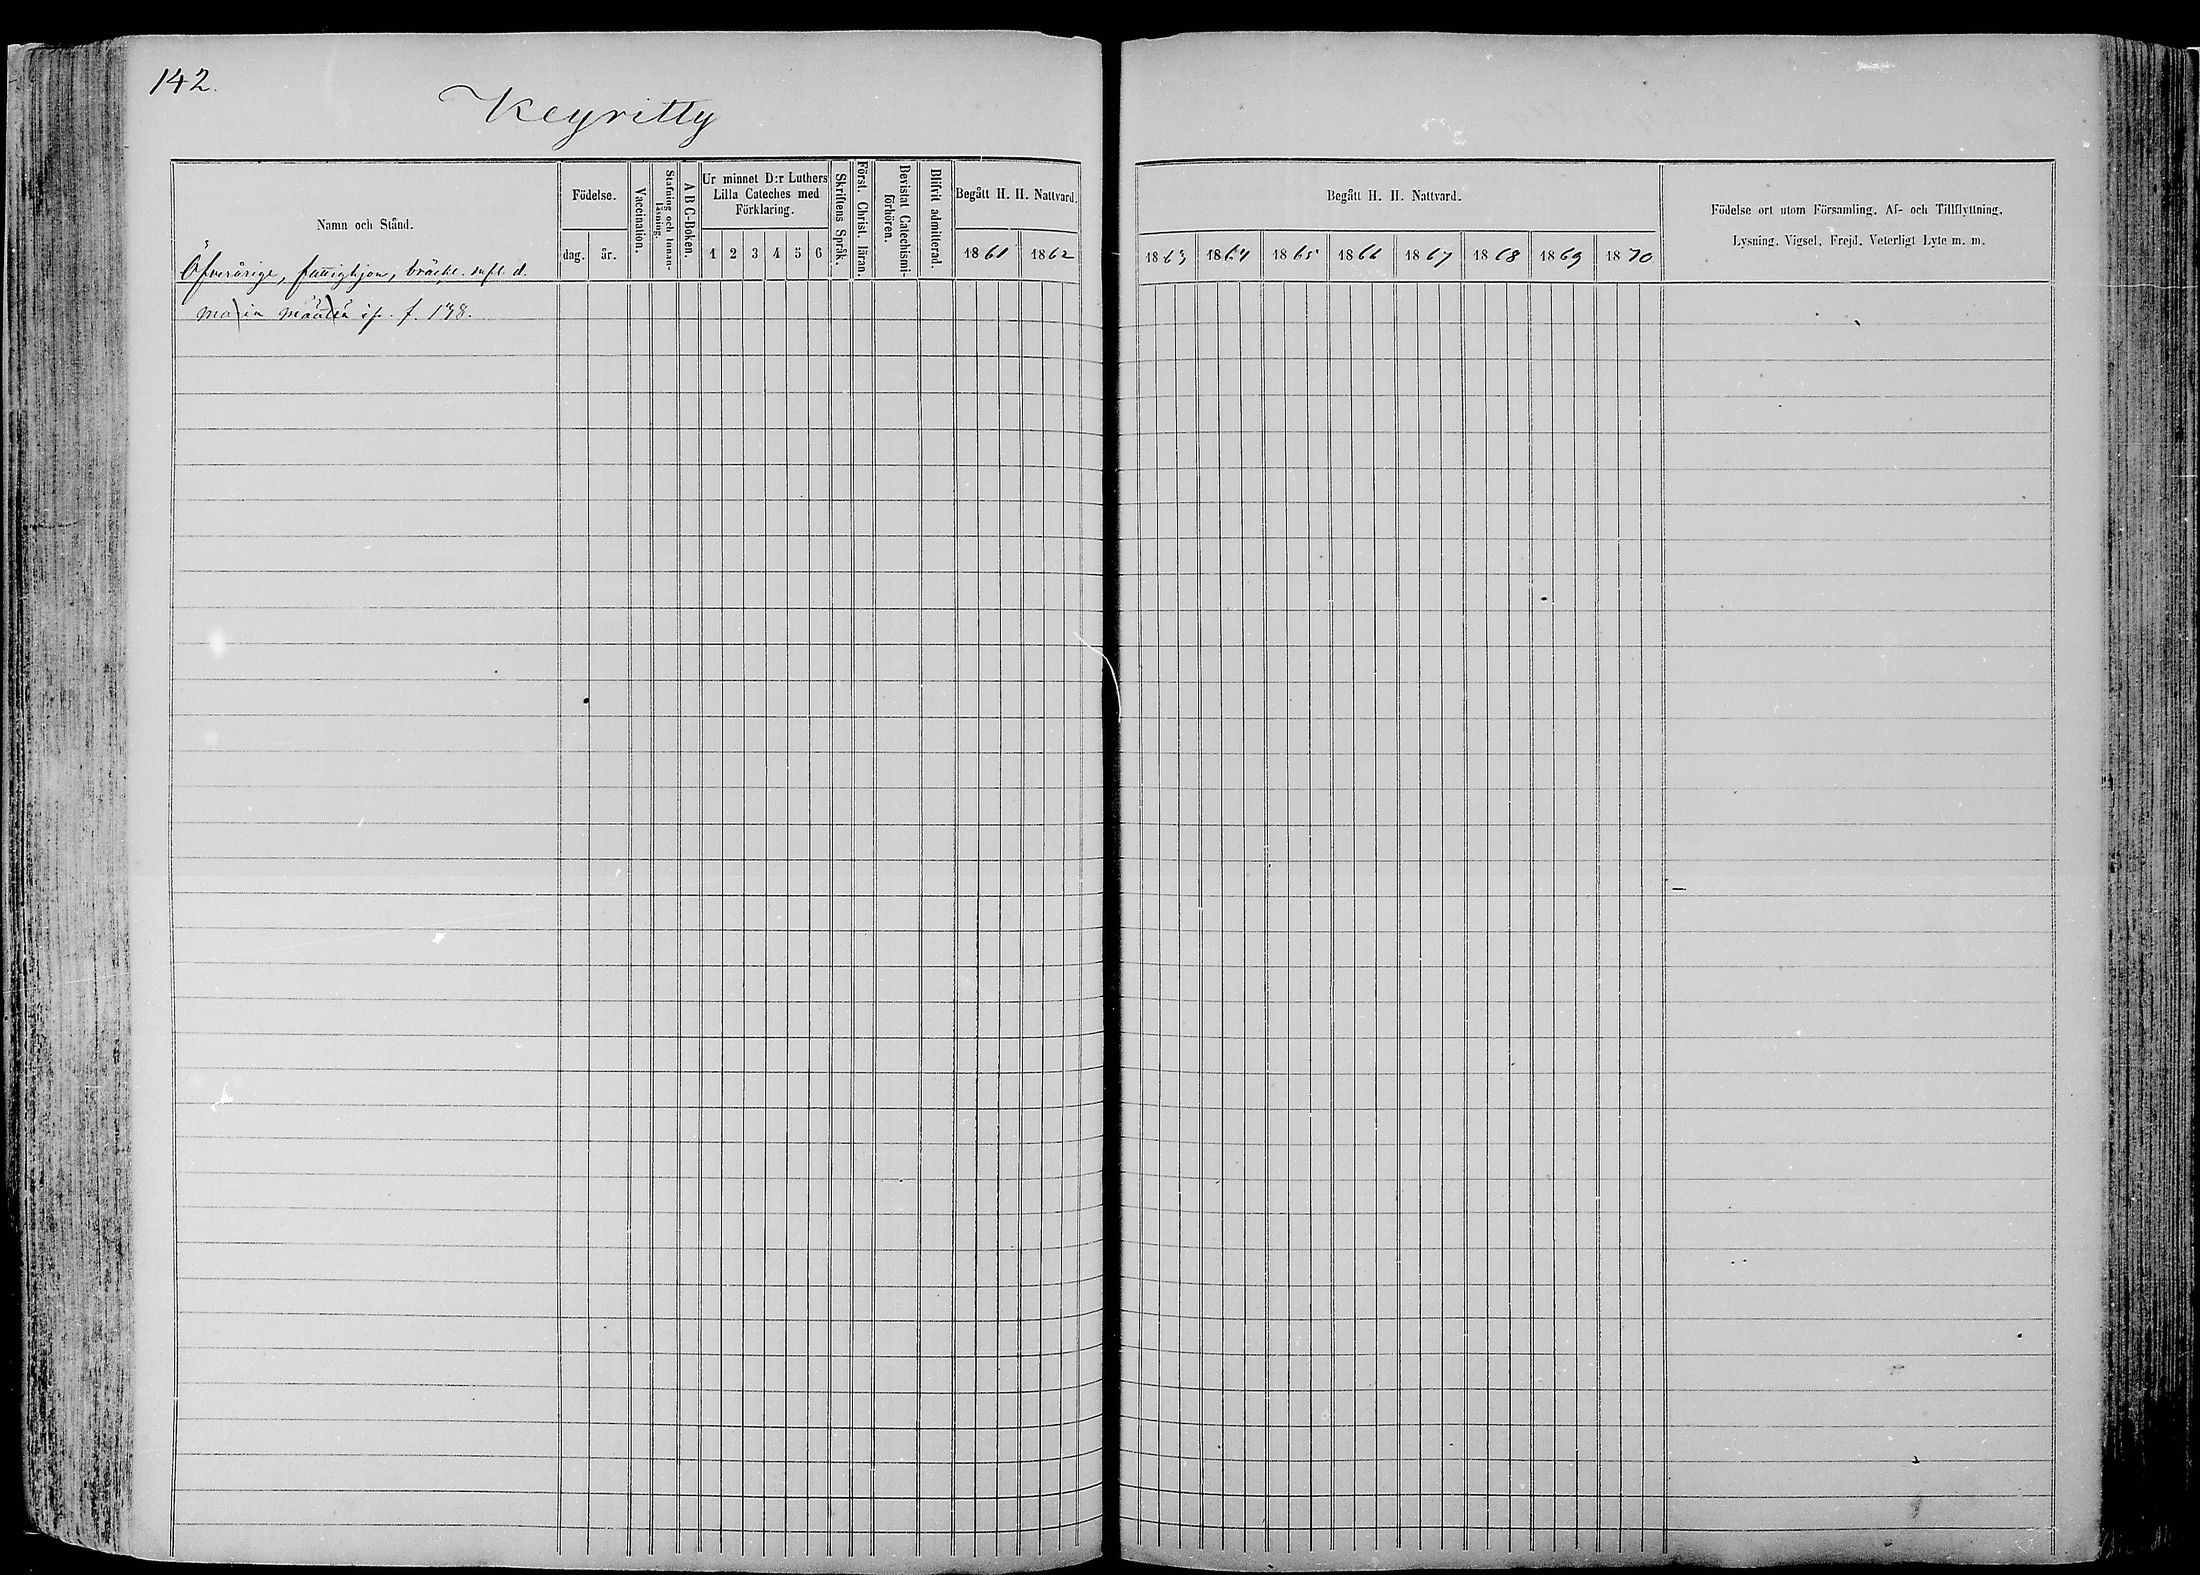 142.
Keyritty
Namn och Stånd.
Öfverårige, fattighjon, bräckl. m.fl. d.
Födelse.
dag.
år.
Vaccination.
Stafning och Innan-
läsning.
A B C-Boken.
Ur minnet D:r Luthers
Lilla Cateches med
Förklaring.
1 2 3 4 5 6
Skriftens Språk.
Först. Christ. läran.
Bevistat Catechismi-
förhören.
Blifvit admitterad.
Begått H. H. Nattvard.
1861 1862
Maria f. 138.
Begått H. H. Nattvard.
1863 1864 1865 1866 1867 1868 1869 1870
Födelse ort utom Församling. Af- och Tillflyttning.
Lysning, Vigsel, Frejd, Veterligt Lyte m. m.